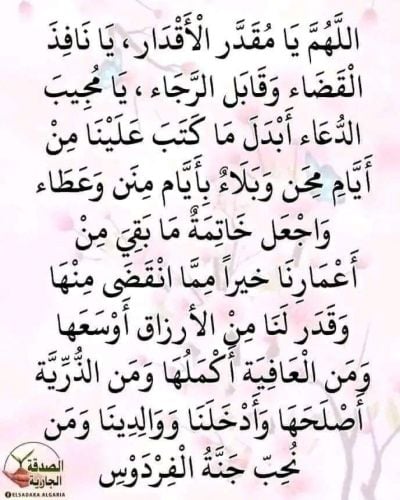 اللَّهُمَّ يَا مُقَدَّر الْأَقْدَار، يَا نَافِذَ
الْقَضَاء وَقَابَل الرَّجَاء، يَا مُجِيبَ
الدُّعَاء أَبْدَل مَا كَتَبَ عَلَيْنَا مِنْ
أَيَّامِ مِحَن وَبَلَاءُ بِأَيَّام مِنَن وَعَطَاء
وَاجْعَل خَاتِمَةُ مَا بَقِي مِنْ
أَعْمَارِنَا خيراً مِمَّا انْقَضَى مِنْهَا
وَقَدَر لَنَا مِنْ الأرزاق أَوْسَعَها
وَمَن الْعَافِيَة أَكْمَلُهَا وَمَن الذُّرِّيَّة
أَصْلَحَهَا وَأَدْخَلَنَا وَوَالِدِينَا وَمَن
نُحِبّ جَنَّةُ الْفِرْدَوْسِ
الصدقة
الجارية
ELSADAKA ALGARIA